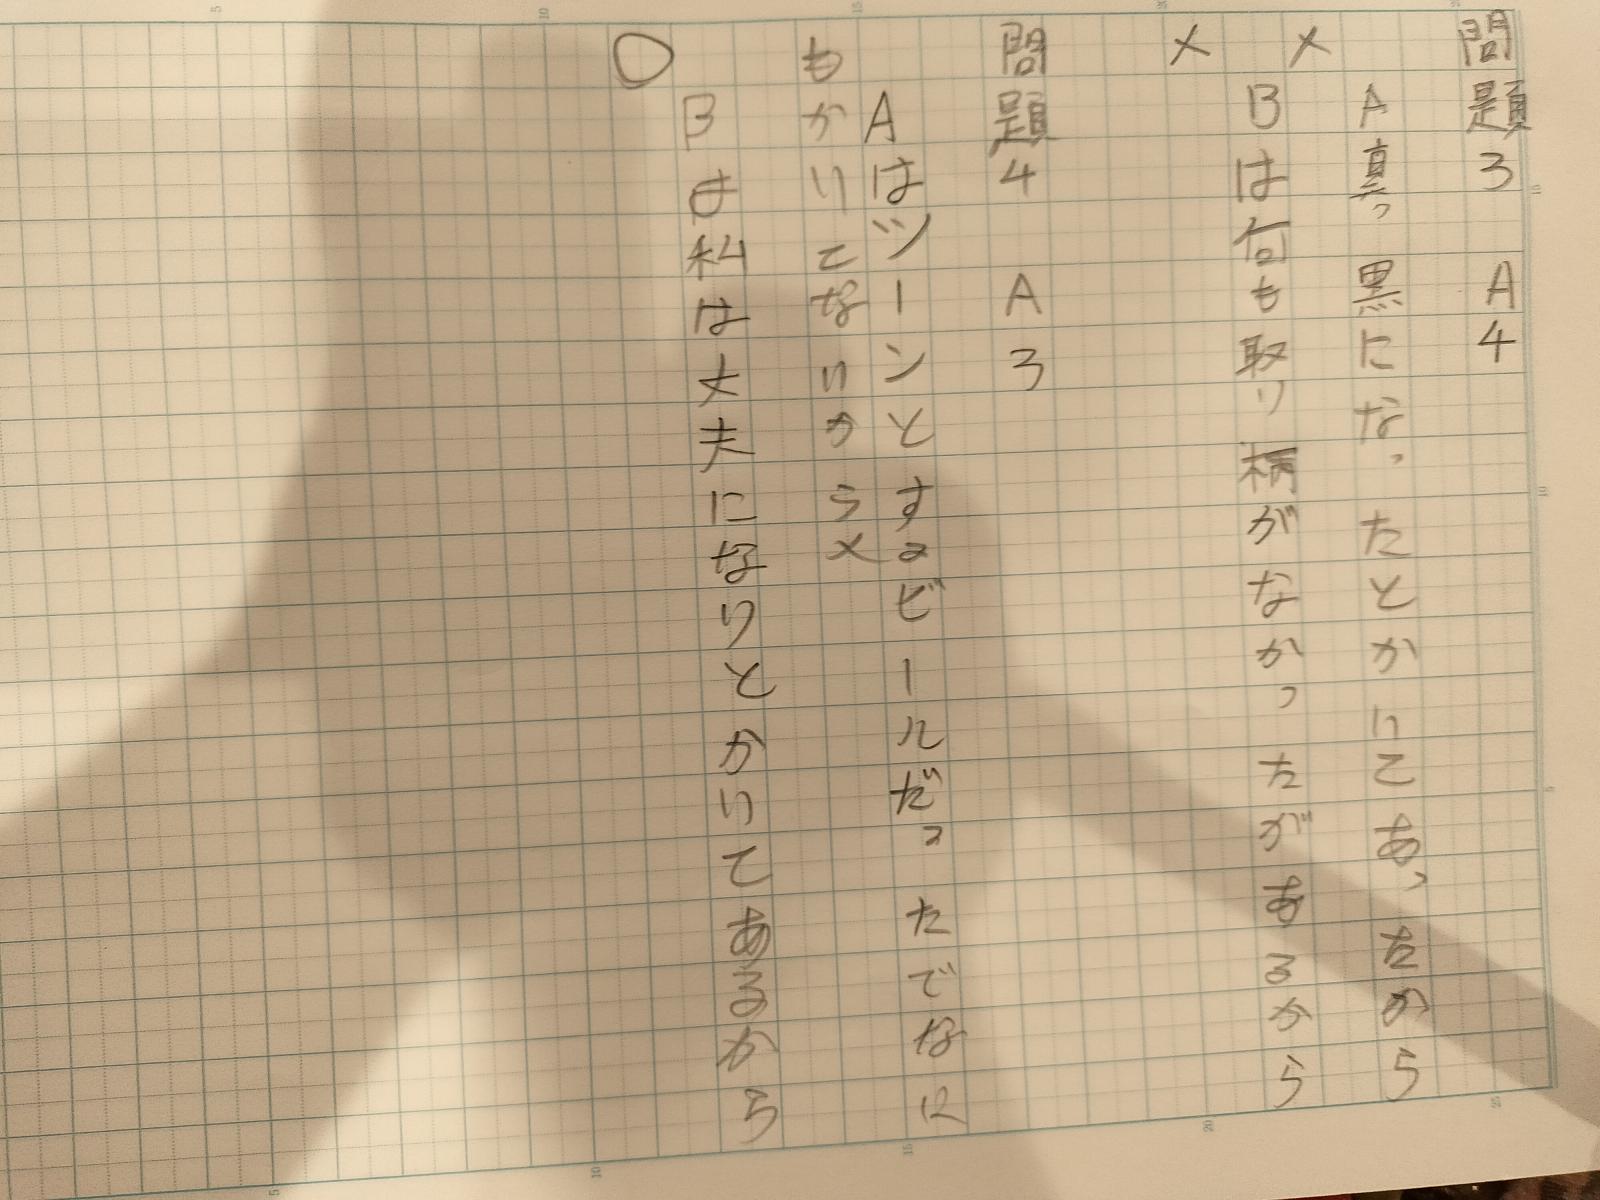 問題3 A4
A真っ黒になったとかいてあったから
×
Bは何も取り柄がなかったがあるから
×
問題4 A3
Aはツーンとするビールだったでなに
もかいてないから×
B 母私は丈夫になりとかいてあるから
○